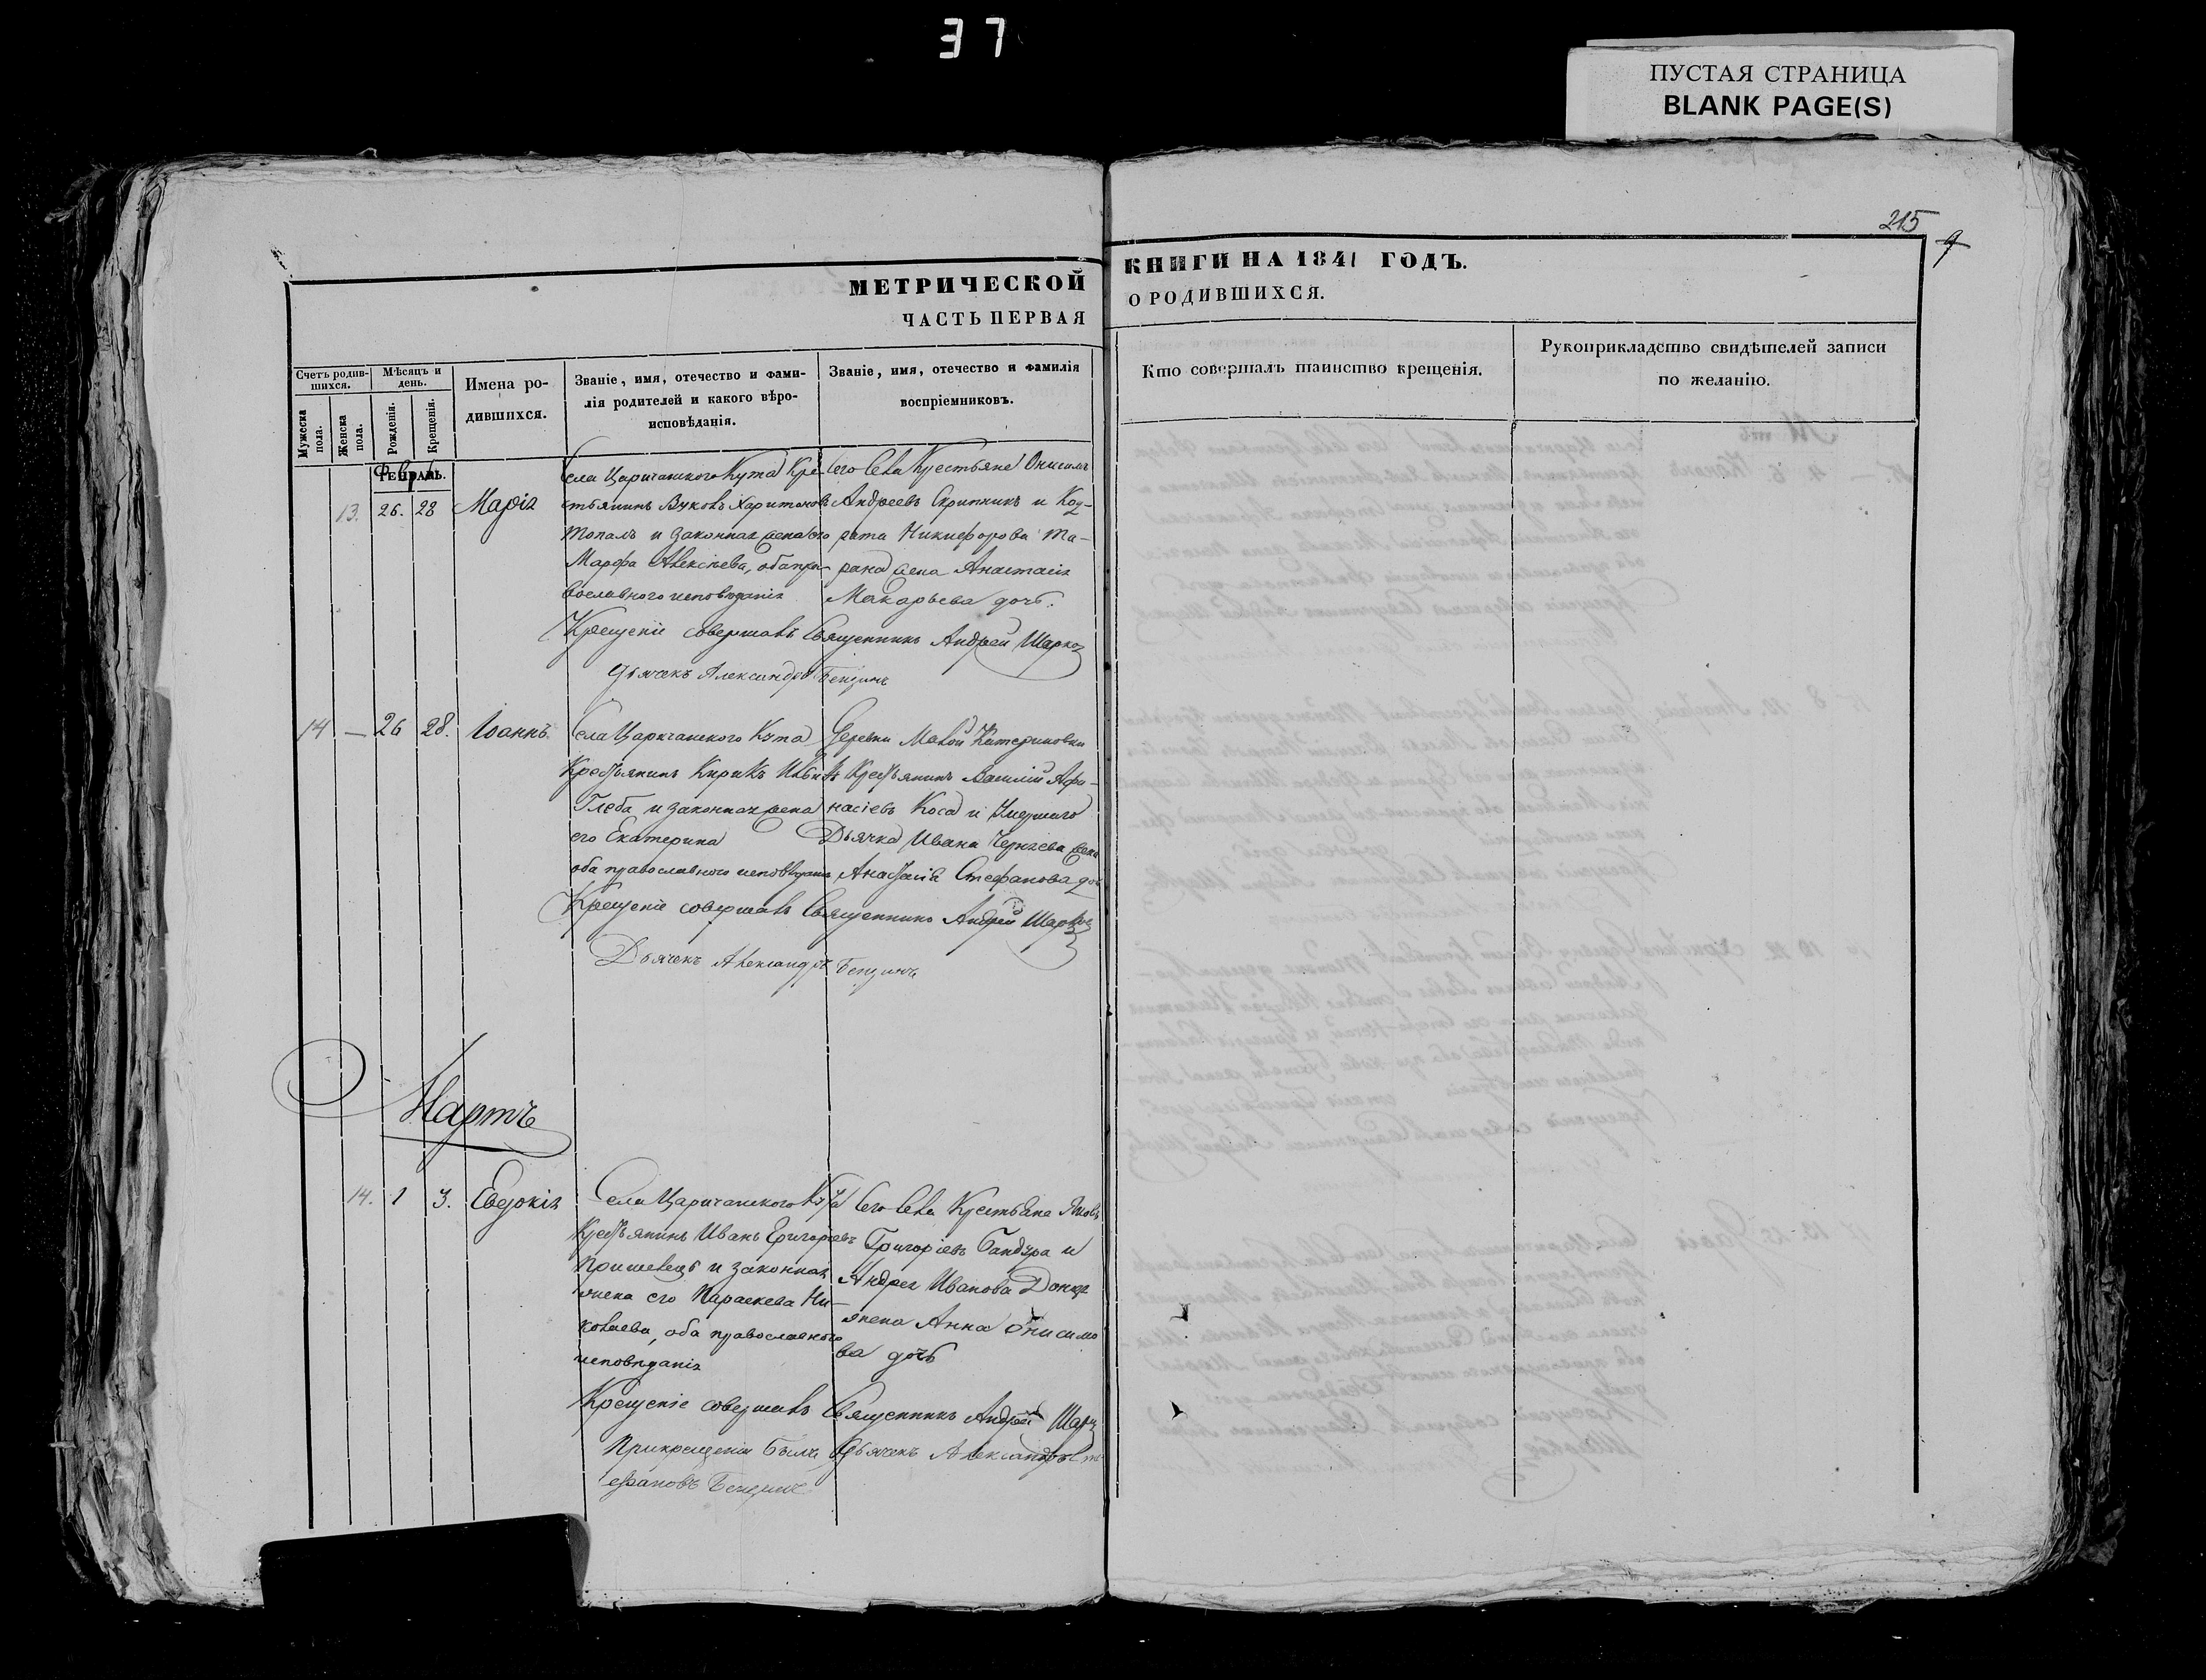 37
ПУСТАЯ СТРАНИЦА
BLANK PAGE(S)
215
9
МЕТРИЧЕСКОЙ
ЧАСТЬ ПЕРВАЯ
КНИГИ НА 1841 ГОДЪ.
О РОДИВШИХСЯ.
Счетъ родив-
шихся.
Мужеска
пола.
Женска
пола.
Мѣсяцъ и
день.
Рожденія.
Крещенія.
Имена ро-
дившихся.
Званіе, имя, отечество и фами-
лія родителей и какого вѣро-
исповѣданія.
Званіе, имя, отечество и фамилія
воспріемниковъ.
Кто совершалъ таинство крещенія.
Рукоприкладство свидѣтелей записи
по желанію.
13. 26. 28 Марія
Села Царичанского Кута Кре-
стьянинъ Харитоновъ
Топалъ и законная жена его
Марфа Алексіева, оба пра-
вославного исповѣданія
Сего Села Крестьяне Онисимъ
Андреевъ Скрипникъ и Код-
рата Никифорова Та-
рана жена Анастасія
Макарьева дочь.
Крещеніе совершалъ Священникъ Андрей
Дьячекъ Александръ Бендинъ
14 — 26 28. Іоаннъ
Села Царичанского Кута
Крестьянинъ Кирикъ
Глеба и законная жена
его Екатерина
оба православного исповѣданія
Деревни Малой Катериновки
Крестьянинъ Василій Афа-
насіевъ Коса и Умершаго
Дьячка Ивана Черняева жена
Анастасія Стефанова доч
Крещеніе совершалъ Священникъ Андрей
Дьячекъ Александръ Бендинъ
Мартъ
14. 1 3. Евдокія
Села Царичанского Кута
Крестьянинъ Иванъ Григоріевъ
Пришевецъ и законная
жена его Параскева Ни-
колаева, оба православного
исповѣданія
Сего Села Крестьяне Яковъ
Григоріевъ Бандура и
Андрея Иванова Донца
жена Анна Онисимо
ва дочь
Крещеніе совершалъ Священникъ Андрей
При крещеніи былъ Дьячекъ Александръ Ст
ефановъ Бендинъ